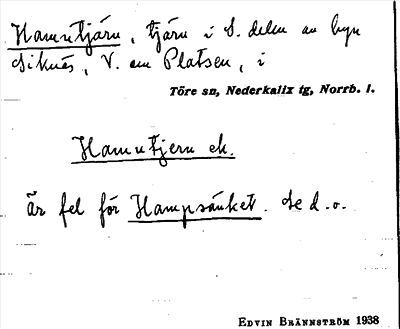 Hamntjärn, tjärn i S. delen av byn
Siknäs, V. om Platsen, i
Töre sn, Nederkalix tg, Norrb. l.
Hamntjern ek.
är fel för Hampsänket. Se d.o.
EDVIN BRÄNNSTRÖM 1938